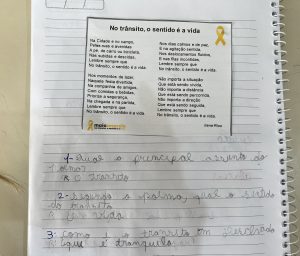 No trânsito, o sentido é a vida
Na Cidade e ou campo,
Pelas ruas e avenidas
A pé, de carro ou bicicleta,
Nas subidas e descidas,
Lembre sempre que
No trânsito, o sentido é a vida.
Nos momentos de lazer,
Naquela festa divertida,
Na companhia de amigos,
Com comidas e bebidas,
Priorize a segurança,
Na chegada e na partida,
Lembre sempre que
No trânsito, o sentido é a vida.
Nos dias calmos e de paz,
E na agitação sentida,
Nos deslocamentos fluidos,
E nas filas incontidas,
Lembre sempre que
No trânsito, o sentido é a vida.
Não importa a situação
Que está sendo vivida,
Não importa a distância
Que está sendo percorrida,
Não importa a direção
Que está sendo seguida,
Lembre sempre que
No trânsito, o sentido é a vida.
maio
1- Qual o principal assunto do
R O transito
2- Segundo o Poema, qual o sentido
do transito
vida
3- Como é o transito em
R que é tranquilo